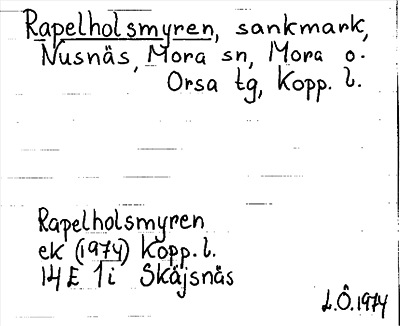 Rapelholsmyren, sankmark,
Nusnäs, Mora sn, Mora o.
Orsa tg, Kopp. l.
Rapelholsmyren
ek (1974) Kopp. l.
14 E 1i Skäjsnäs
L.Ö. 1974